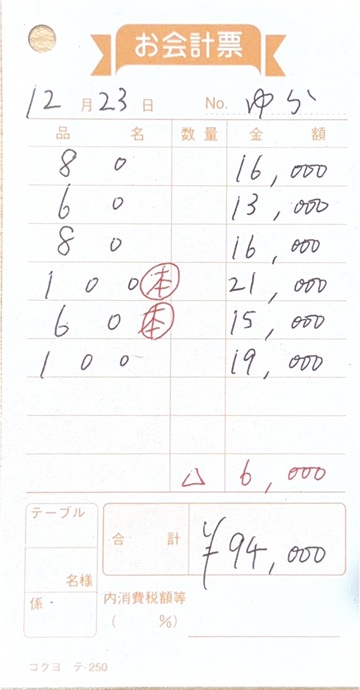 お会計票
12月23日 No. ゆら
品名 数量 金額
80 16,000
60 13,000
80 16,000
100 本 21,000
60 本 15,000
100 19,000
△ 6,000
テーブル
名様
係・
合計 ¥94,000
内消費税額等
( %)
コクヨ テ-250